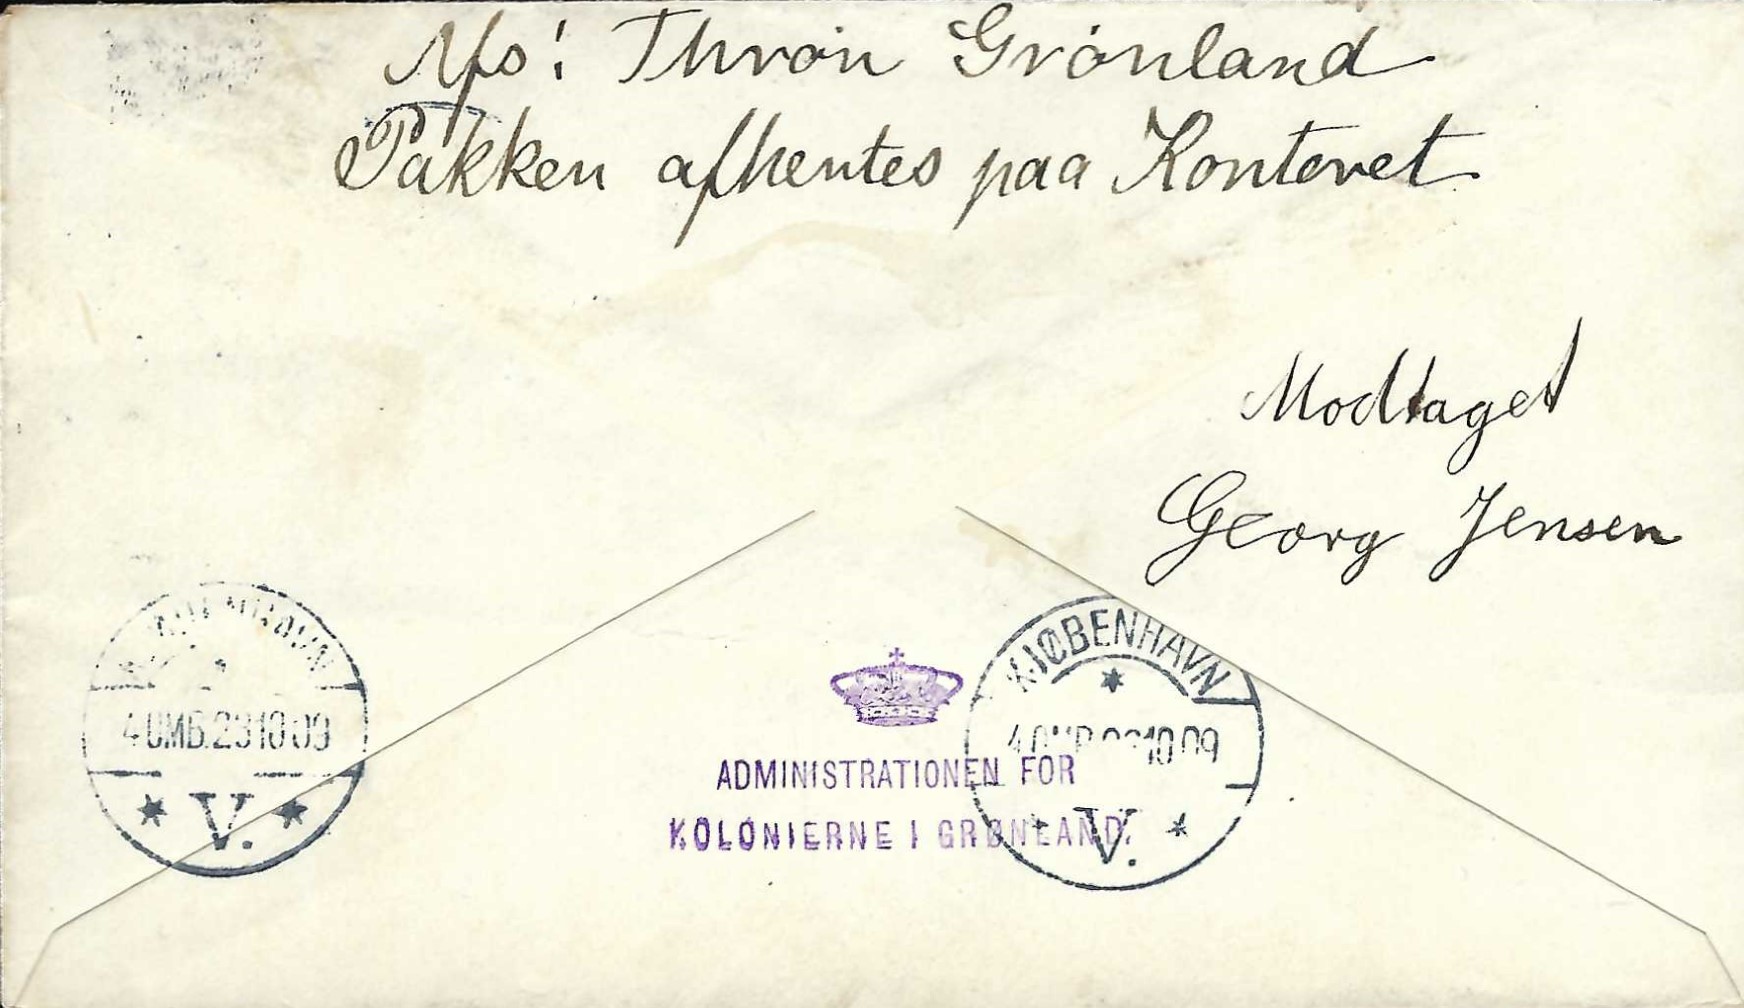 Afs: Thrøn Grönland
Pakken afhentes paa Kontoret.
Modtaget
Georg Jensen
KJØBENHAVN
4.OMB.23 10 09
V.
ADMINISTRATIONEN FOR
KOLONIERNE I GRØNLAND.
KJØBENHAVN
4.OMB.23 10 09
V.